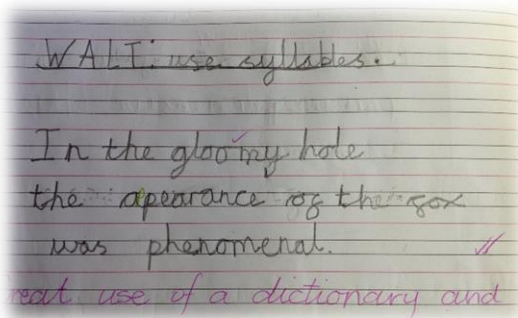 WALT: use syllables.
In the gloomy hole
the apearance of the fox
was phenomenal.
reat use of a dictionary and